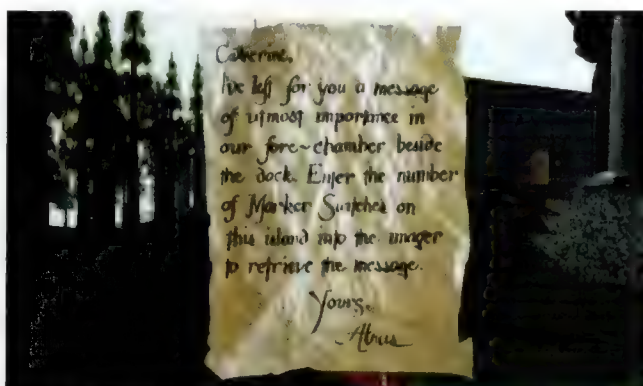 Catherine,
I've left for you a message
of utmost importance in
our fore-chamber beside
the dock. Enter the number
of Marker Switches on
this island into the imager
to retrieve the message.
Yours,
Atrus